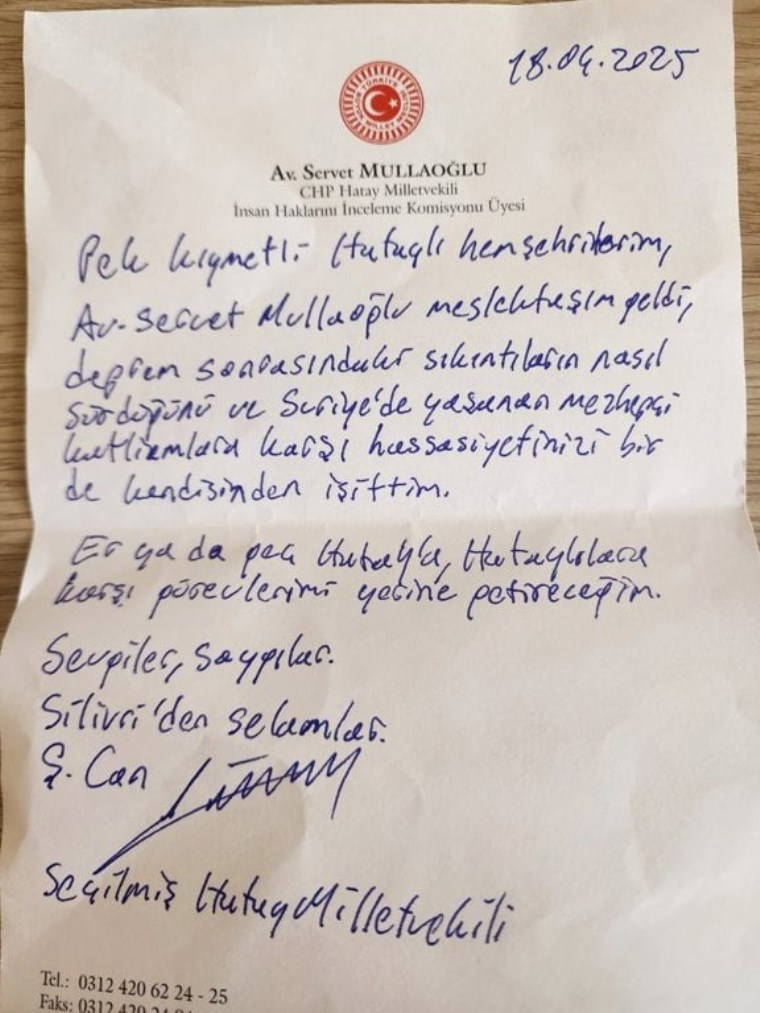 18.04.2025
TÜRKİYE BÜYÜK MİLLET MECLİSİ
Av. Servet MULLAOĞLU
CHP Hatay Milletvekili
İnsan Haklarını İnceleme Komisyonu Üyesi
Pek kıymetli Hataylı hemşehrilerim,
Av. Servet Mullaoğlu meslektaşım geldi,
deprem sonrasındaki sıkıntıların nasıl
sürdüğünü ve Suriye'de yaşanan mezhepçi
katliamlara karşı hassasiyetinizi bir
de kendisinden işittim.
Er ya da geç Hatay'a, Hataylılara
karşı görevlerimi yerine getireceğim.
Sevgiler, saygılar.
Silivri'den selamlar.
Ş. Can
Seçilmiş Hatay Milletvekili
Tel.: 0312 420 62 24 - 25
Faks: 0312 420 24